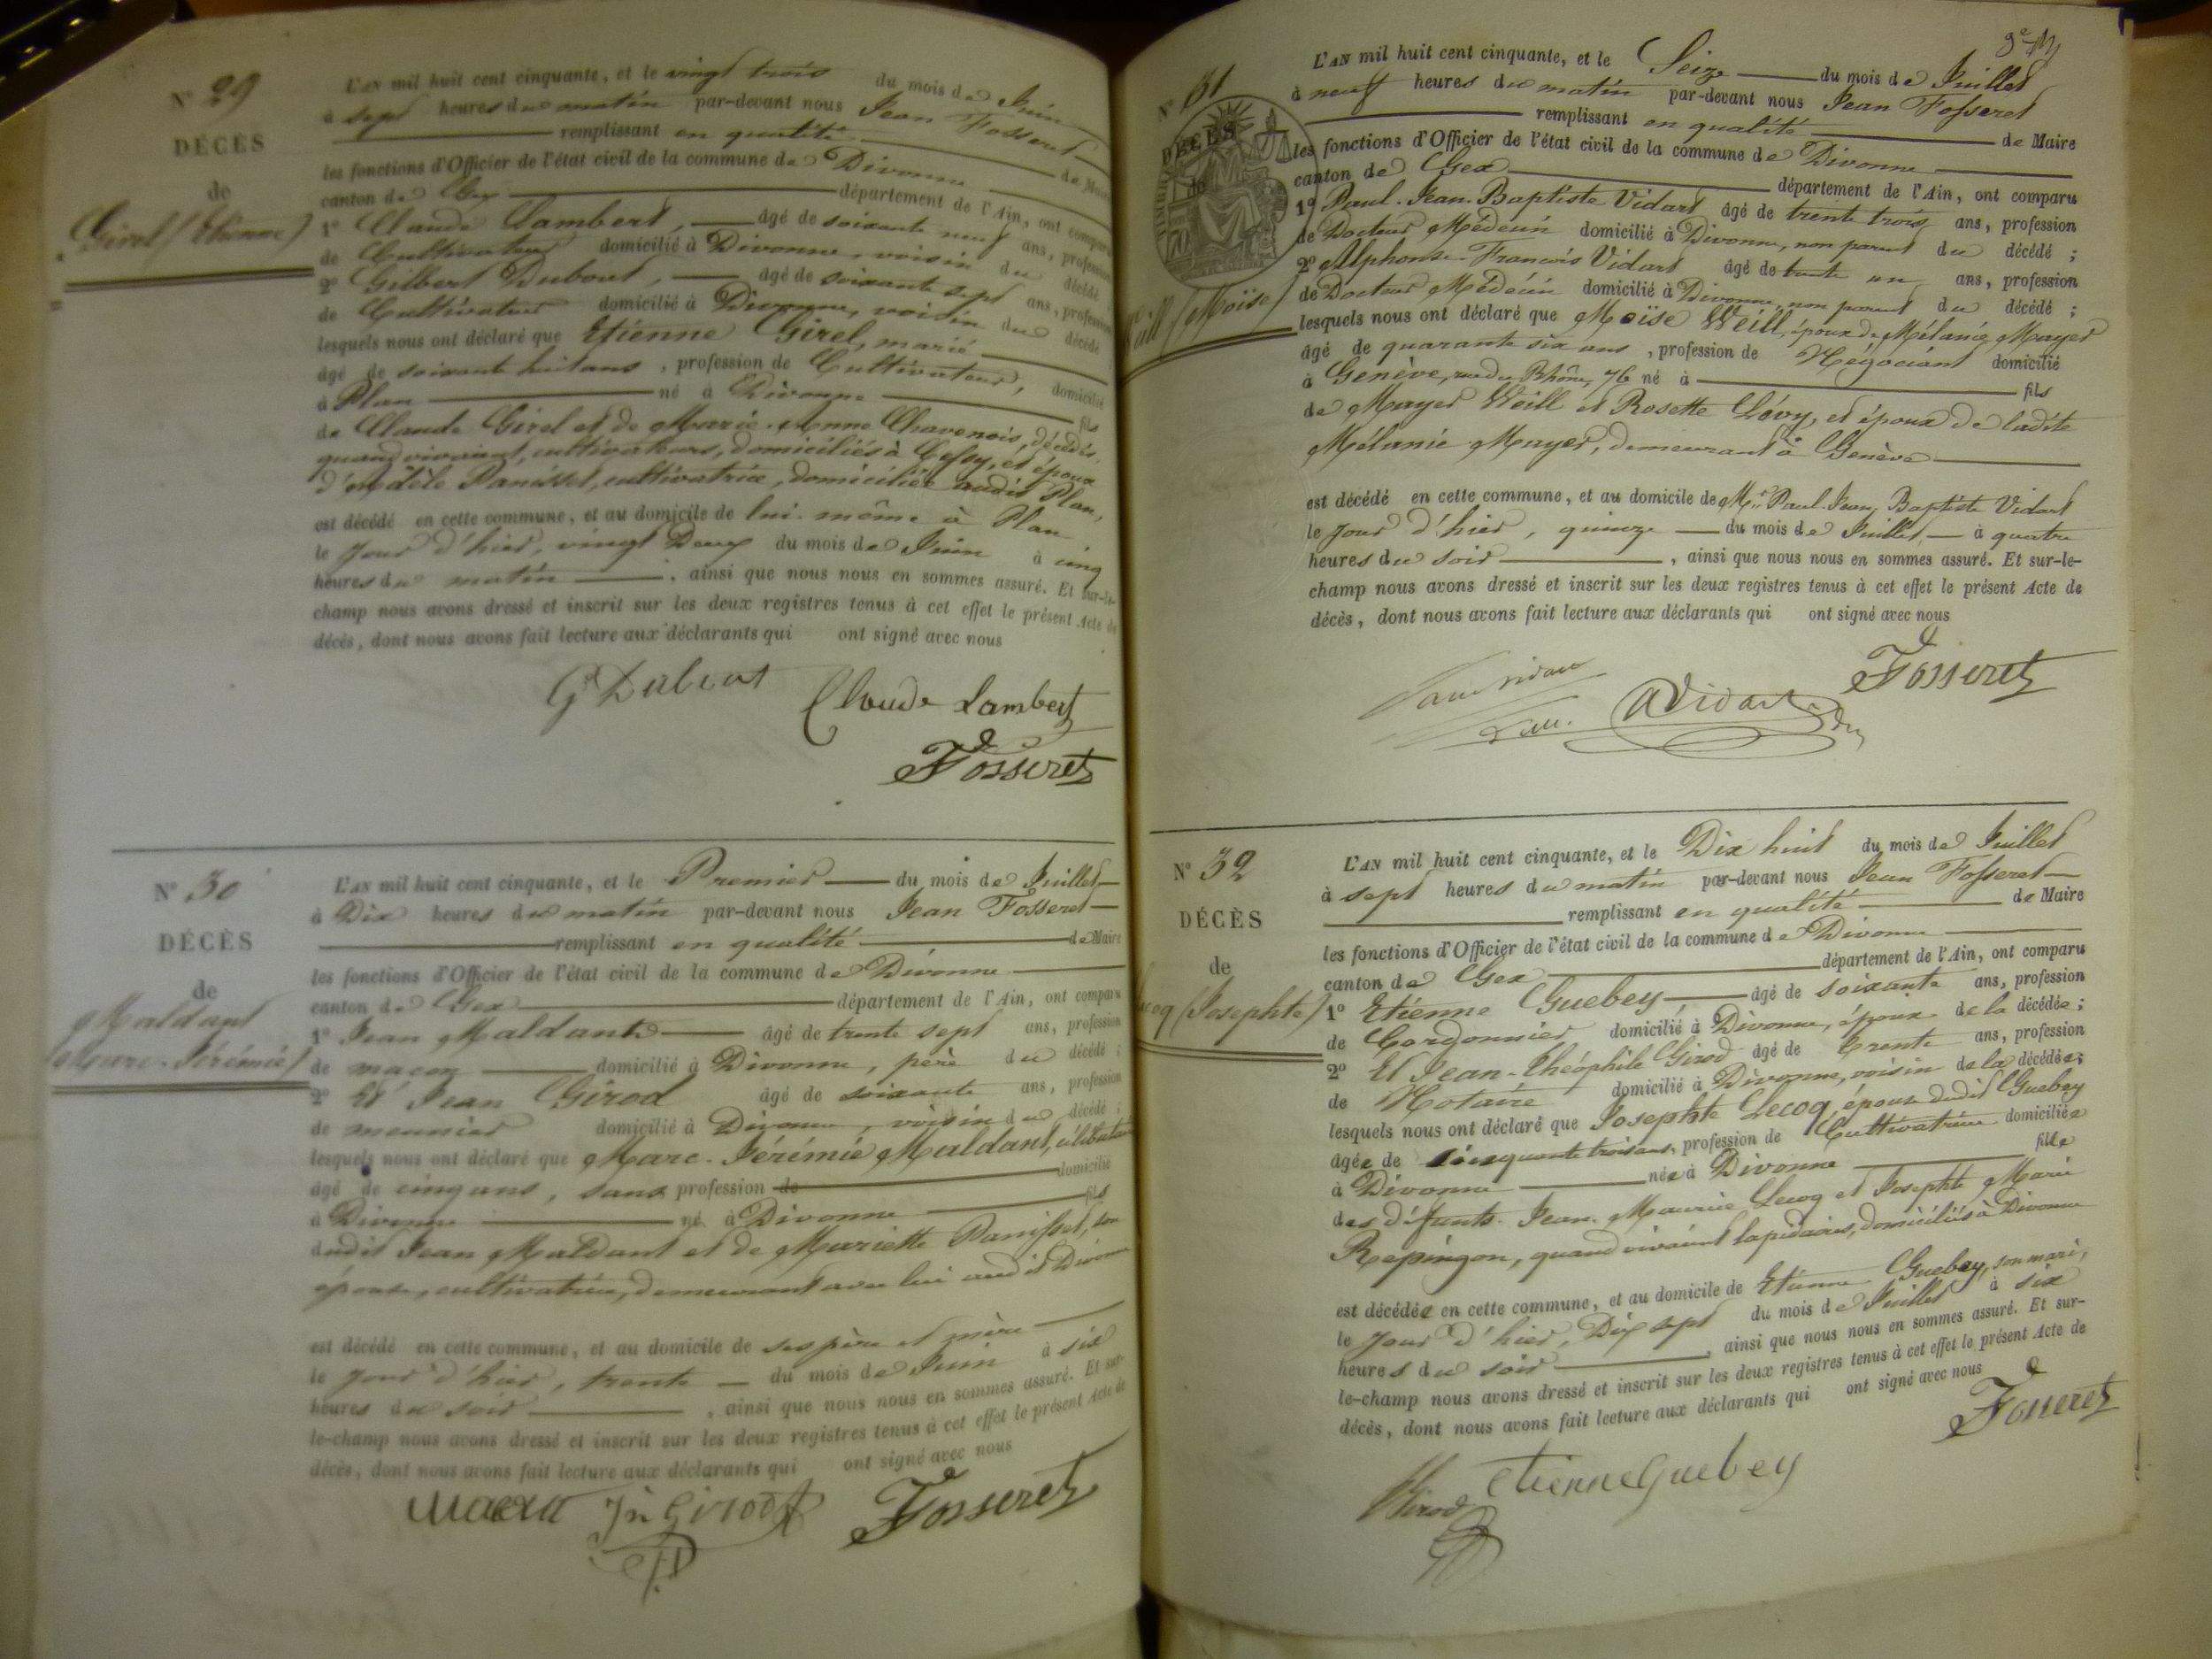 N° 29
DÉCÈS
de
Girel (Etienne)
L'AN mil huit cent cinquante, et le vingt trois du mois de Juin
à sept heures du matin par-devant nous Jean Fosseret
remplissant en qualité de Maire
les fonctions d'Officier de l'état civil de la commune de Divonne
canton de Gex département de l'Ain, ont comparu
1° Claude Lambert, âgé de soixante neuf ans, profession
de Cultivateur domicilié à Divonne, voisin du décédé
2° Gilbert Dubout, âgé de soixante sept ans, profession
de Cultivateur domicilié à Divonne, voisin du décédé
lesquels nous ont déclaré que Etienne Girel, marié
âgé de soixante huit ans, profession de Cultivateur, domicilié
à Plan né à Divonne fils
de Claude Girel et de Marie-Anne Chavenois, décédés,
quand vivaient, cultivateurs, domiciliés à Cessy, et époux
d'Adèle Panisset, cultivatrice, domiciliée audit Plan,
est décédé en cette commune, et au domicile de lui-même à Plan
le jour d'hier, vingt Deux du mois de Juin à cinq
heures du matin, ainsi que nous nous en sommes assuré. Et sur-le-
champ nous avons dressé et inscrit sur les deux registres tenus à cet effet le présent Acte de
décès, dont nous avons fait lecture aux déclarants qui ont signé avec nous
G Dubout
Claude Lambert
Fosseret
N° 30
DÉCÈS
de
Maldant
(Marc-Jérémie)
L'AN mil huit cent cinquante, et le Premier du mois de Juillet
à Dix heures du matin par-devant nous Jean Fosseret
remplissant en qualité de Maire
les fonctions d'Officier de l'état civil de la commune de Divonne
canton de Gex département de l'Ain, ont comparu
1° Jean Maldant âgé de trente sept ans, profession
de maçon domicilié à Divonne, père du décédé ;
2° Et Jean Girod âgé de soixante ans, profession
de meunier domicilié à Divonne, voisin du décédé ;
lesquels nous ont déclaré que Marc-Jérémie Maldant, célibataire
âgé de cinq ans, sans profession de domicilié
à Divonne né à Divonne fils
dudit Jean Maldant et de Mariette Panisset, son
épouse, cultivatrice, demeurant avec lui audit Divonne
est décédé en cette commune, et au domicile de ses père et mère
le jour d'hier, trente du mois de Juin à six
heures du soir, ainsi que nous nous en sommes assuré. Et sur-
le-champ nous avons dressé et inscrit sur les deux registres tenus à cet effet le présent Acte de
décès, dont nous avons fait lecture aux déclarants qui ont signé avec nous
Jn Girod
Fosseret
N° 31
DÉCÈS
de
(Moïse)
L'AN mil huit cent cinquante, et le Seize du mois de Juillet
à neuf heures du matin par-devant nous Jean Fosseret
remplissant en qualité de Maire
les fonctions d'Officier de l'état civil de la commune de Divonne
canton de Gex département de l'Ain, ont comparu
1° Paul-Jean-Baptiste Vidart âgé de trente trois ans, profession
de Docteur Médecin domicilié à Divonne, non parent du décédé ;
2° Alphonse-François Vidart âgé de trente un ans, profession
de Docteur Médecin domicilié à Divonne, non parent du décédé ;
lesquels nous ont déclaré que Moïse Weill, époux de Mélanie Mayer
âgé de quarante six ans, profession de Négociant domicilié
à Genève, rue du Rhône, 76 né à fils
de Mayer Weill et Rosette Lévy, et époux de ladite
Mélanie Mayer, demeurant à Genève
est décédé en cette commune, et au domicile de Mr Paul-Jean Baptiste Vidart
le jour d'hier, quinze du mois de Juillet à quatre
heures du soir, ainsi que nous nous en sommes assuré. Et sur-le-
champ nous avons dressé et inscrit sur les deux registres tenus à cet effet le présent Acte de
décès, dont nous avons fait lecture aux déclarants qui ont signé avec nous
Fosseret
AVidart
N° 32
DÉCÈS
de
(Josephte)
L'AN mil huit cent cinquante, et le Dix huit du mois de Juillet
à sept heures du matin par-devant nous Jean Fosseret
remplissant en qualité de Maire
les fonctions d'Officier de l'état civil de la commune de Divonne
canton de Gex département de l'Ain, ont comparu
1° Etienne Guebey, âgé de soixante ans, profession
de Cordonnier domicilié à Divonne, époux de la décédée ;
2° Et Jean-Théophile Girod âgé de trente ans, profession
de Notaire domicilié à Divonne, voisin de la décédée ;
lesquels nous ont déclaré que Josephte Lecoq épouse dudit Guebey
âgée de cinquante trois ans, profession de Cultivatrice domiciliée
à Divonne née à Divonne fille
des défunts Jean-Maurice Lecoq et Josephte Marie
Repingon, quand vivaient lapidaires, domiciliés à Divonne
est décédée en cette commune, et au domicile de Etienne Guebey, son mari,
le jour d'hier, Dix sept du mois de Juillet à six
heures du soir, ainsi que nous nous en sommes assuré. Et sur-
le-champ nous avons dressé et inscrit sur les deux registres tenus à cet effet le présent Acte de
décès, dont nous avons fait lecture aux déclarants qui ont signé avec nous
Fosseret
Etienne Guebey
Girod